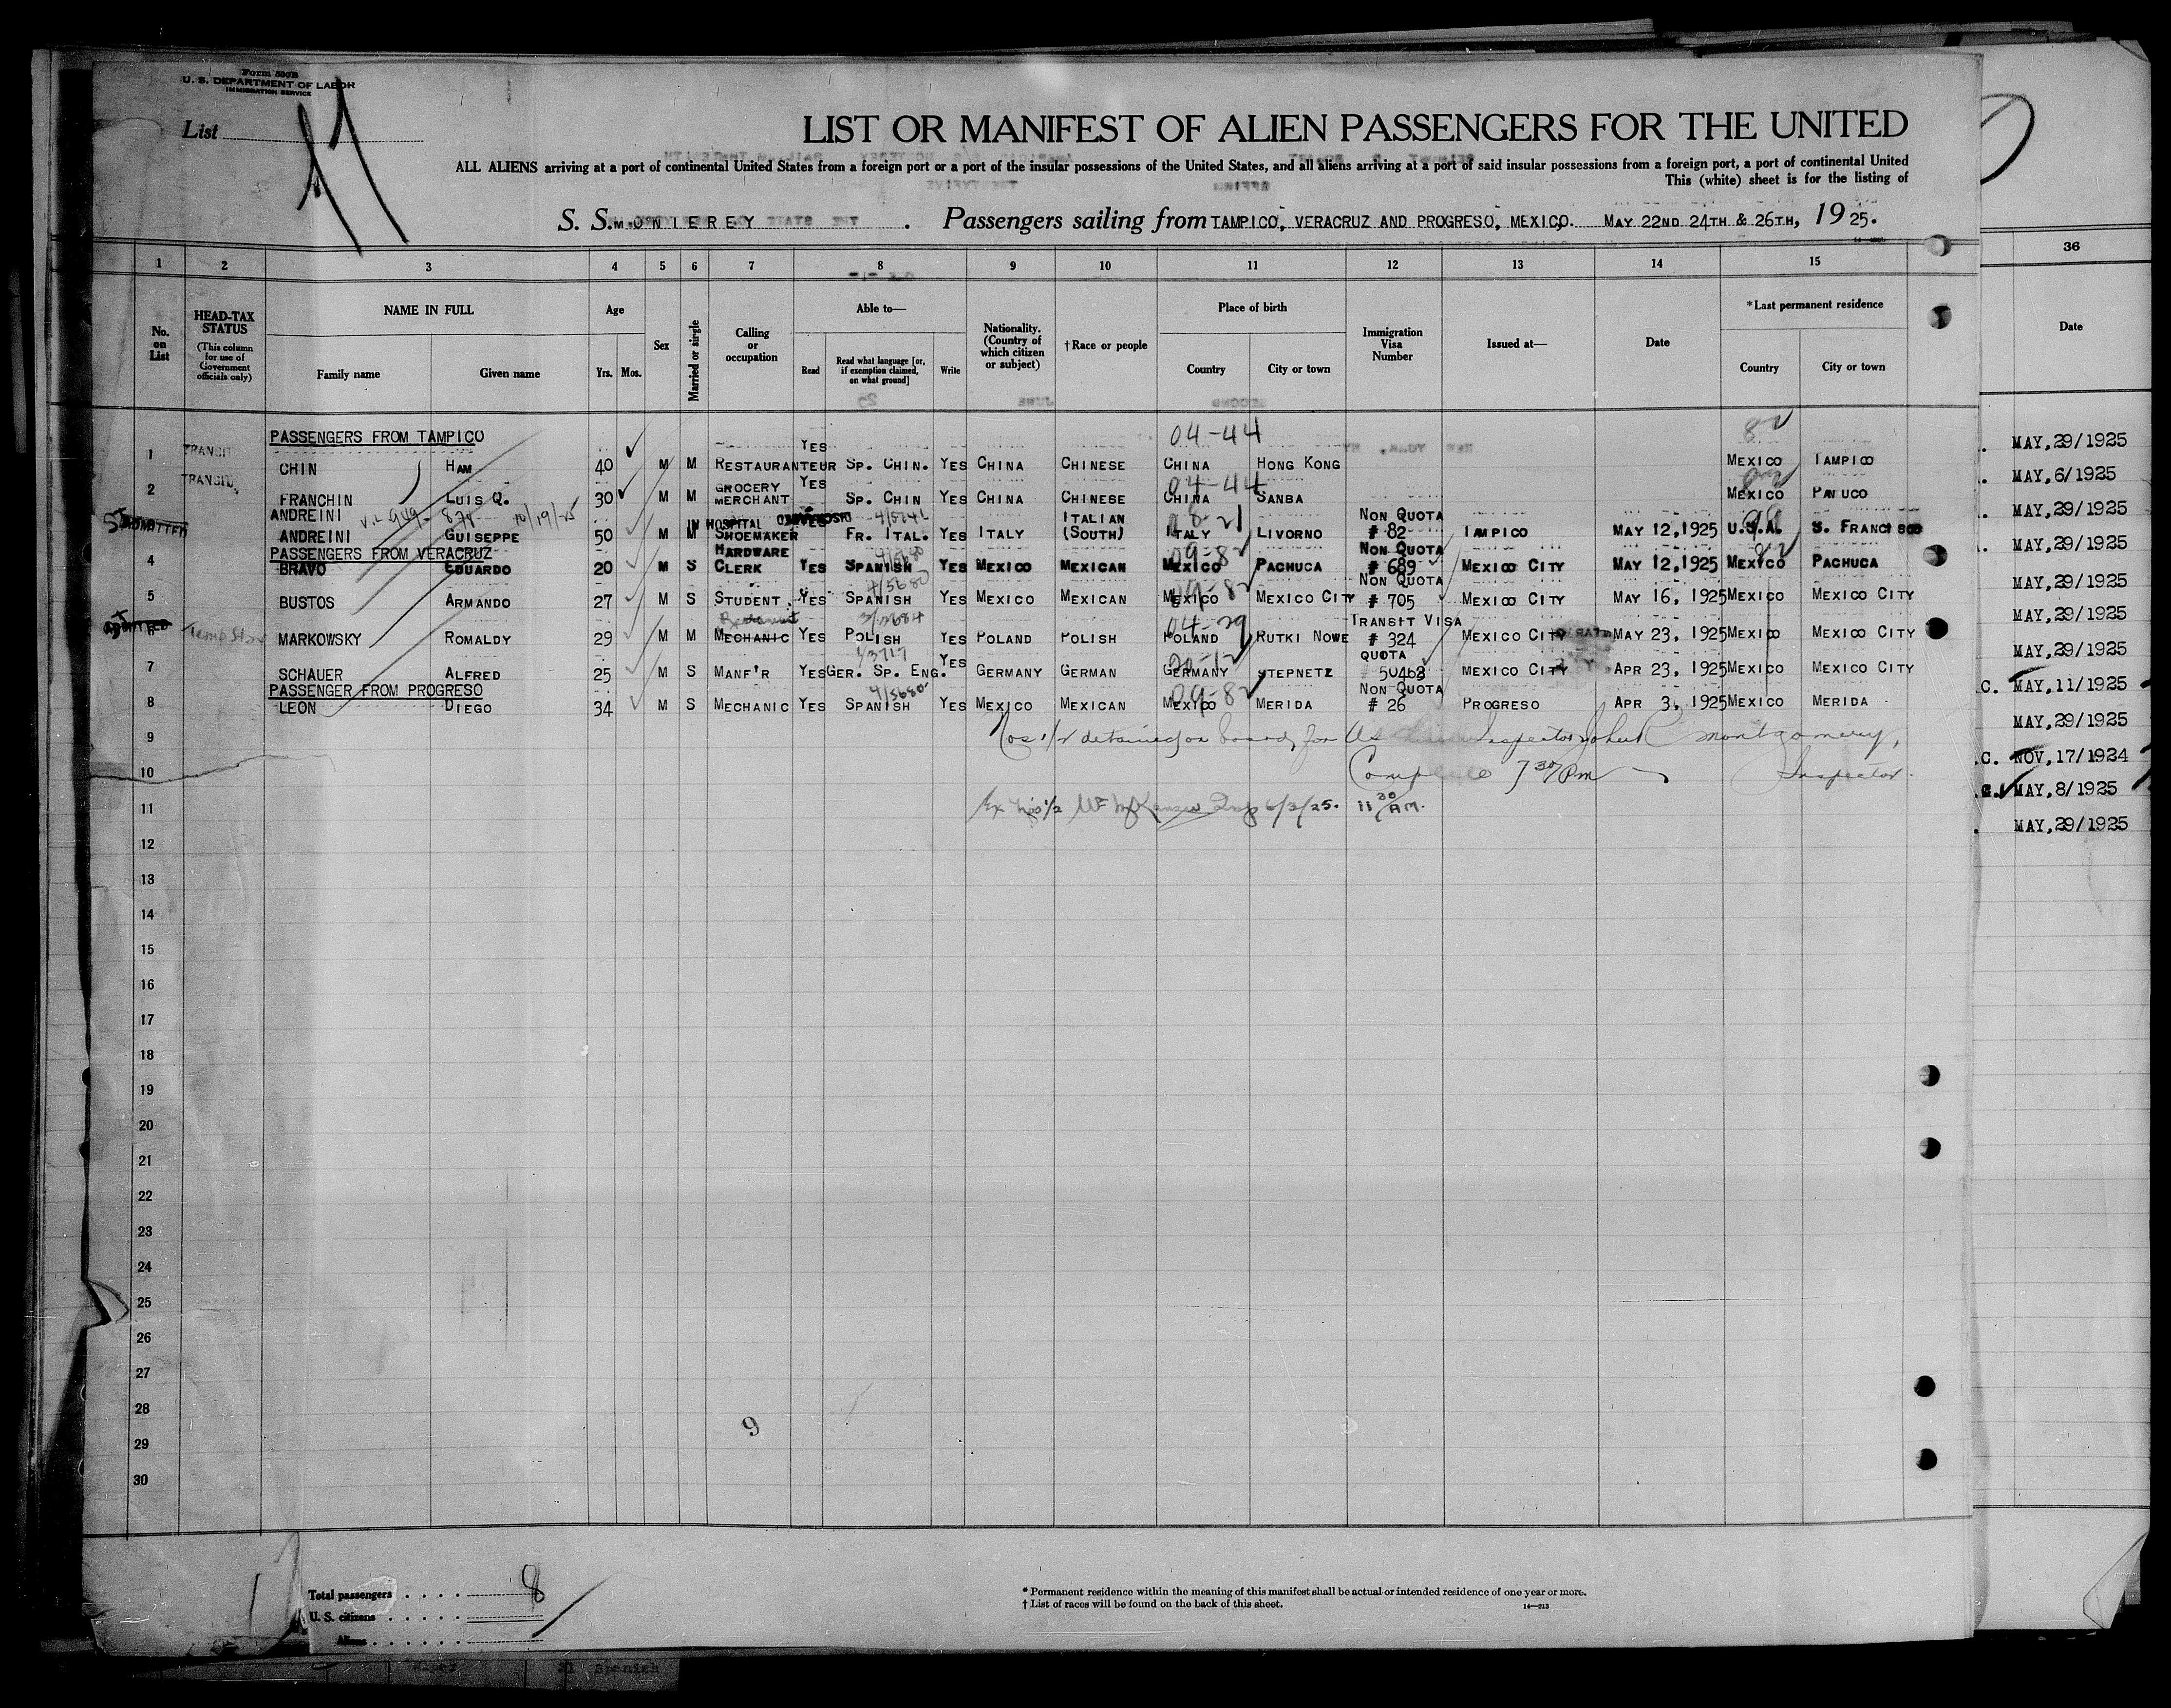 Form 500B
U. S. DEPARTMENT OF LABOR
IMMIGRATION SERVICE
List
LIST OR MANIFEST OF ALIEN PASSENGERS FOR THE UNITED
ALL ALIENS arriving at a port of continental United States from a foreign port or a port of the insular possessions of the United States, and all aliens arriving at a port of said insular possessions from a foreign port, a port of continental United
This (white) sheet is for the listing of
S. S. MONTEREY . Passengers sailing from TAMPICO, VERACRUZ AND PROGRESO, MEXICO. MAY 22ND 24TH & 26TH, 1925.
1 2 3 4 5 6 7 8 9 10 11 12 13 14 15 36
No. on List
HEAD-TAX STATUS
(This column for use of Government officials only)
NAME IN FULL
Family name Given name
Age
Yrs. Mos.
Sex
Married or single
Calling or occupation
Able to—
Read
Read what language [or, if exemption claimed, on what ground]
Write
Nationality. (Country of which citizen or subject)
†Race or people
Place of birth
Country City or town
Immigration Visa Number
Issued at—
Date
*Last permanent residence
Country City or town
Date
PASSENGERS FROM TAMPICO 04-44 82
1 TRANSIT CHIN HAM 40 M M RESTAURANTEUR YES SP. CHIN. YES CHINA CHINESE CHINA HONG KONG MEXICO TAMPICO
04-44
2 TRANSIT FRANCHIN LUIS Q. 30 M M GROCERY MERCHANT YES SP. CHIN YES CHINA CHINESE CHINA SANBA MEXICO PANUCO
ANDREINI 878 10/19/25
ADMITTED ANDREINI GUISEPPE 50 M M IN HOSPITAL SHOEMAKER YES FR. ITAL. YES ITALY ITALIAN (SOUTH) ITALY LIVORNO NON QUOTA # 82 TAMPICO MAY 12,1925 U.S.A. S. FRANCISCO
PASSENGERS FROM VERACRUZ
4 BRAVO EDUARDO 20 M S HARDWARE CLERK YES SPANISH YES MEXICO MEXICAN MEXICO PACHUCA NON QUOTA # 689 MEXICO CITY MAY 12,1925 MEXICO PACHUCA
09-82 4/5680
5 BUSTOS ARMANDO 27 M S STUDENT YES SPANISH YES MEXICO MEXICAN MEXICO MEXICO CITY NON QUOTA # 705 MEXICO CITY MAY 16, 1925 MEXICO MEXICO CITY
04-29
ADMITTED 6 MARKOWSKY ROMALDY 29 M M MECHANIC YES POLISH YES POLAND POLISH POLAND RUTKI NOWE TRANSIT VISA # 324 MEXICO CITY MAY 23, 1925 MEXICO MEXICO CITY
7 SCHAUER ALFRED 25 M S MANF'R YES GER. SP. ENG. YES GERMANY GERMAN GERMANY STEPNETZ QUOTA 50463 MEXICO CITY APR 23, 1925 MEXICO MEXICO CITY
PASSENGER FROM PROGRESO
09-82 4/5680
8 LEON DIEGO 34 M S MECHANIC YES SPANISH YES MEXICO MEXICAN MEXICO MERIDA NON QUOTA # 26 PROGRESO APR 3, 1925 MEXICO MERIDA
9 Nos 1/2 detained on board, for Inspector John C Montgomery,
10 7 30/Pm Inspector.
11 Ex Nos 1/2 6/2/25. 11 30/AM.
12
13
14
15
16
17
18
19
20
21
22
23
24
25
26
27
28
9
29
30
MAY,29/1925
MAY,6/1925
MAY,29/1925
MAY,29/1925
MAY,29/1925
MAY,29/1925
MAY,29/1925
C. MAY,11/1925
MAY,29/1925
C. NOV,17/1924
MAY,8/1925
MAY,29/1925
Total passengers 8
U. S. citizens
Aliens
* Permanent residence within the meaning of this manifest shall be actual or intended residence of one year or more.
† List of races will be found on the back of this sheet. 14—313
Spanish